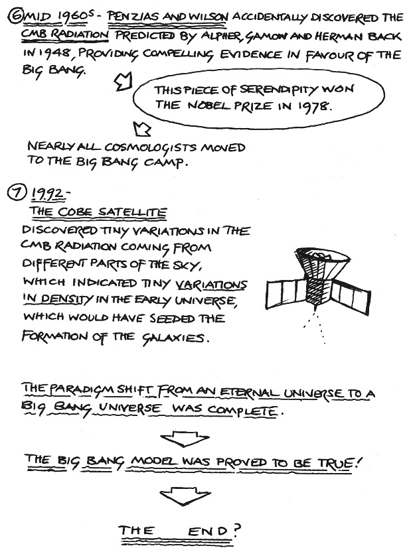 ⑥ MID 1960S - PENZIAS AND WILSON ACCIDENTALLY DISCOVERED THE
CMB RADIATION PREDICTED BY ALPHER, GAMOW AND HERMAN BACK
IN 1948, PROVIDING COMPELLING EVIDENCE IN FAVOUR OF THE
BIG BANG.
THIS PIECE OF SERENDIPITY WON
THE NOBEL PRIZE IN 1978.
NEARLY ALL COSMOLOGISTS MOVED
TO THE BIG BANG CAMP.
⑦ 1992 -
THE COBE SATELLITE
DISCOVERED TINY VARIATIONS IN THE
CMB RADIATION COMING FROM
DIFFERENT PARTS OF THE SKY,
WHICH INDICATED TINY VARIATIONS
IN DENSITY IN THE EARLY UNIVERSE,
WHICH WOULD HAVE SEEDED THE
FORMATION OF THE GALAXIES.
THE PARADIGM SHIFT FROM AN ETERNAL UNIVERSE TO A
BIG BANG UNIVERSE WAS COMPLETE.
THE BIG BANG MODEL WAS PROVED TO BE TRUE!
THE END?